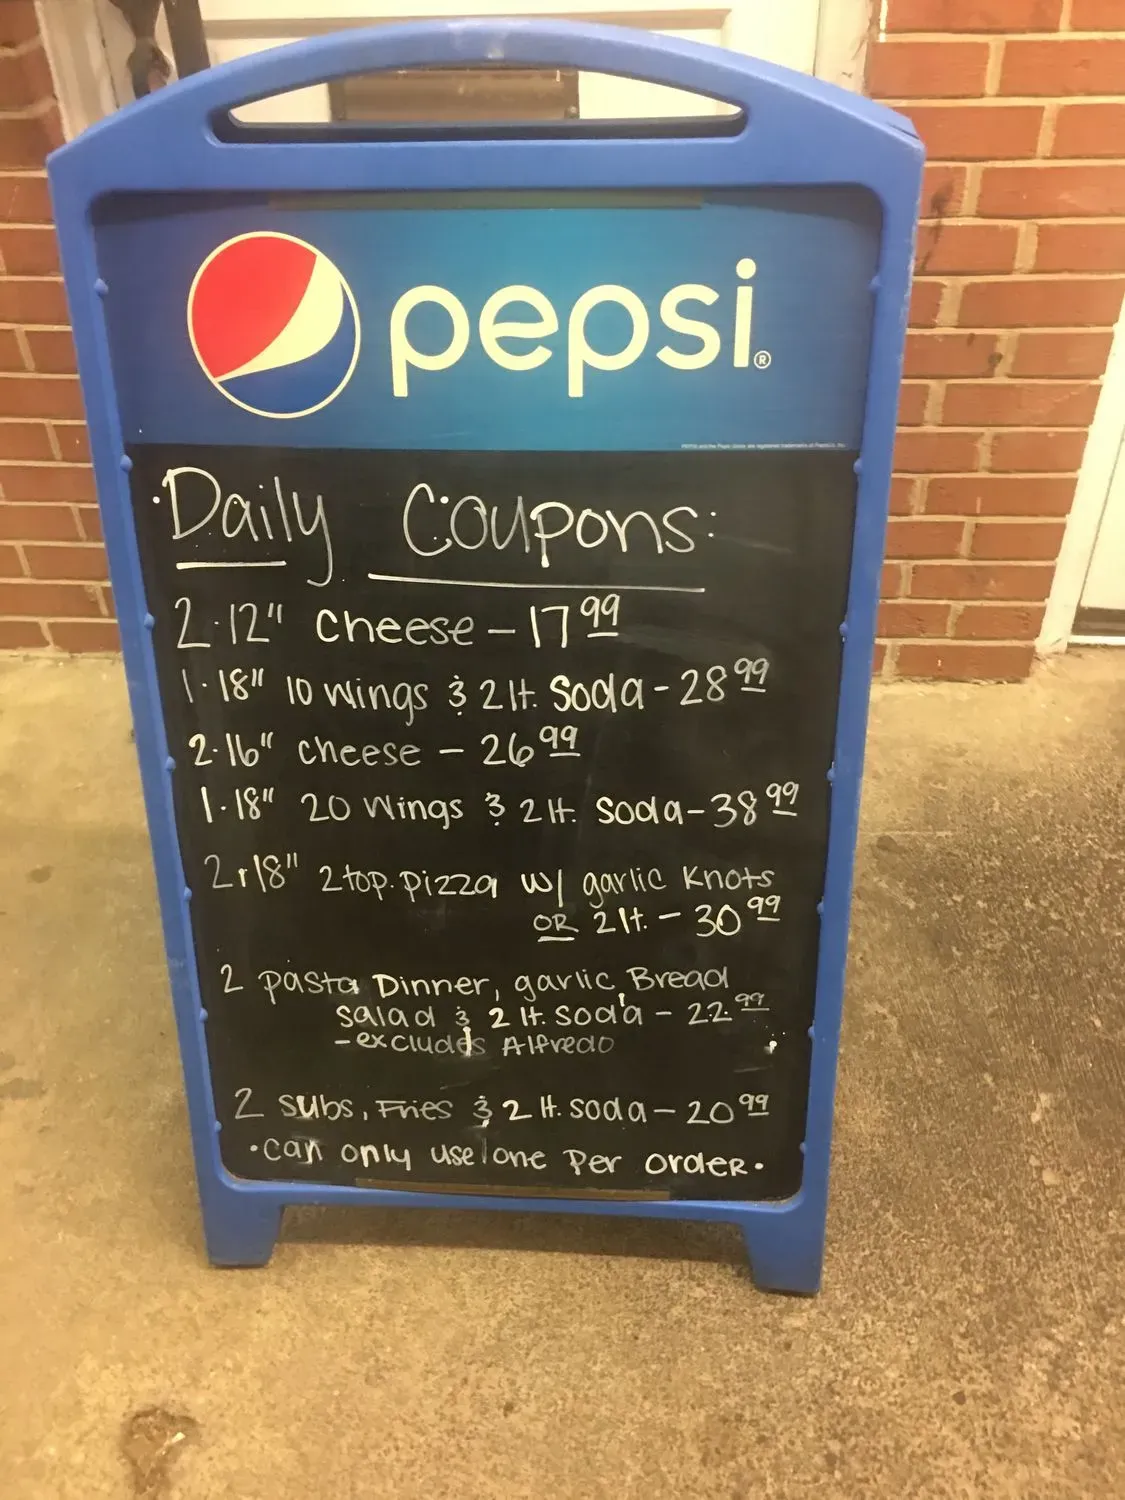 pepsi®
·Daily Coupons:
2·12" cheese – 17 99
1·18" 10 wings & 2 lt. Soda - 28 99
2·16" cheese – 26 99
1·18" 20 Wings & 2 lt. Soda - 38 99
2·18" 2 top. pizza w/ garlic Knots
OR 2 lt. – 30 99
2 pasta Dinner, garlic Bread
Salad & 2 lt. Soda – 22.99
- excludes Alfredo
2 subs, Fries & 2 lt. soda – 20 99
·can only use one Per order·